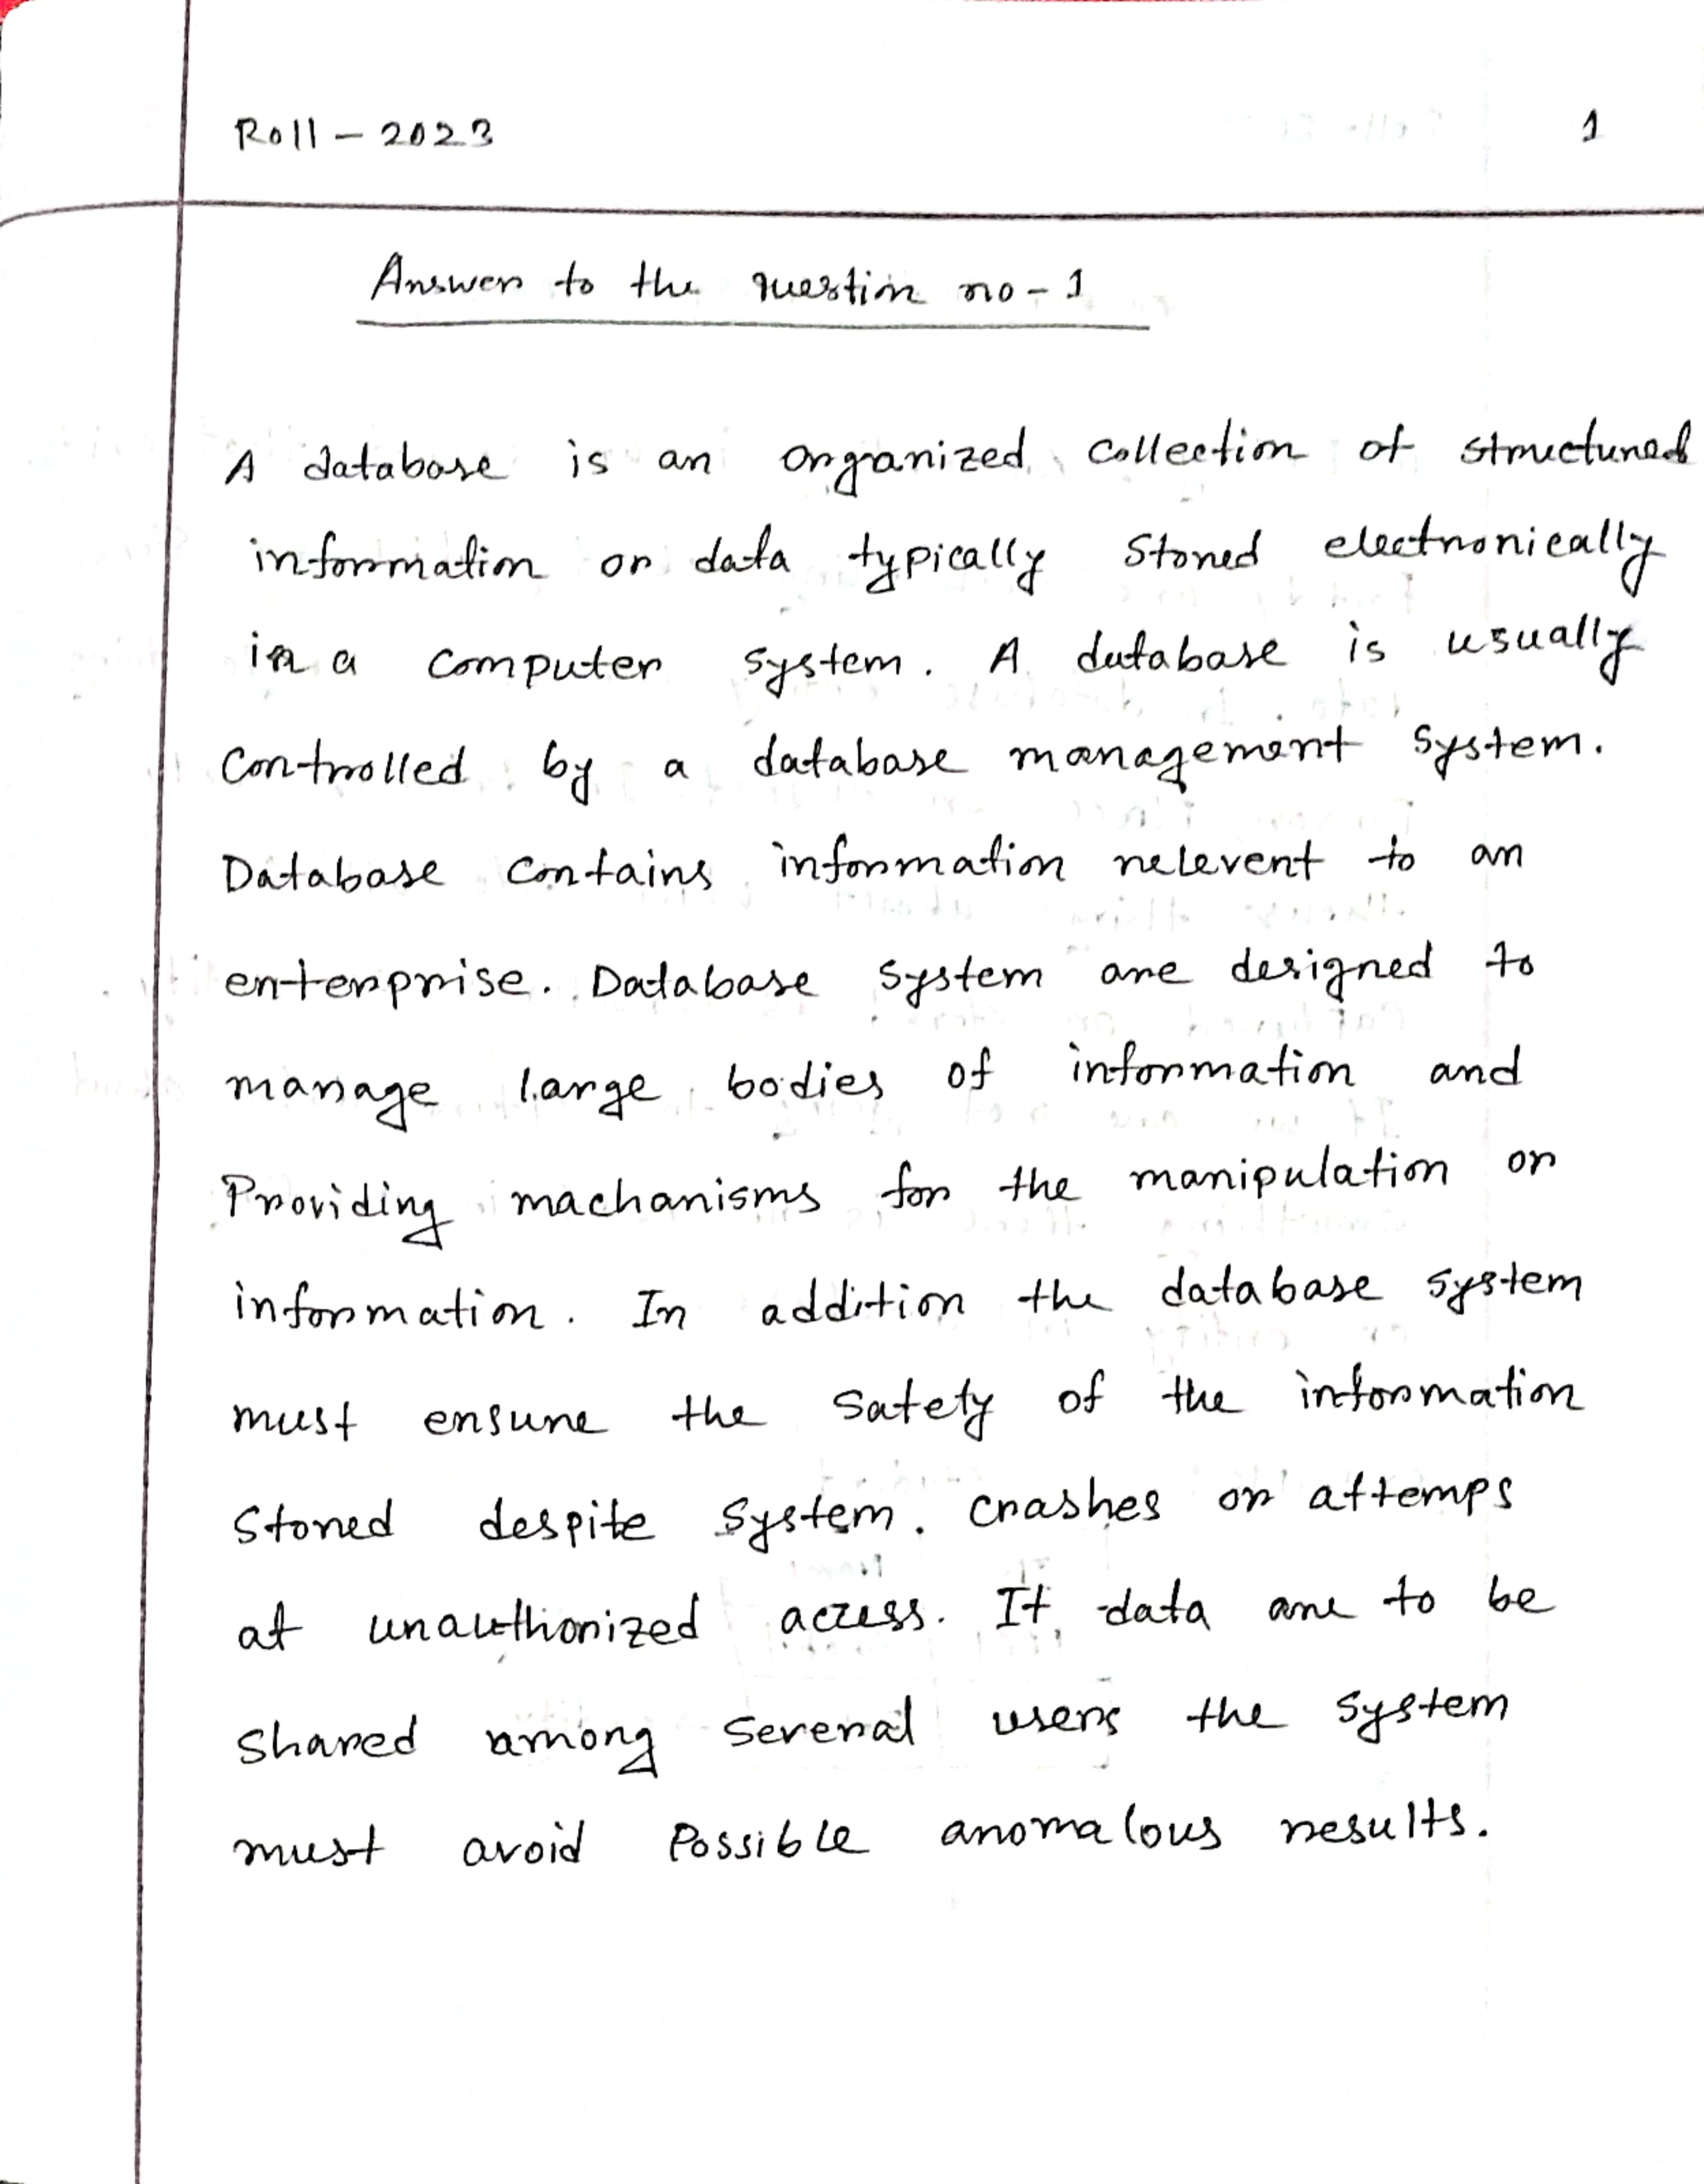 Roll - 2023
1
Answer to the question no - 1
A database is an organized collection of structured
information or data typically stored electronically
in a computer system. A database is usually
controlled by a database management system.
Database contains information relevent to an
enterprise. Database system are designed to
manage large bodies of information and
Providing machanisms for the manipulation or
information. In addition the database system
must ensure the safety of the information
stored despite system. crashes or attemps
at unauthorized access. If data are to be
shared among several users the system
must avoid possible anomalous results.